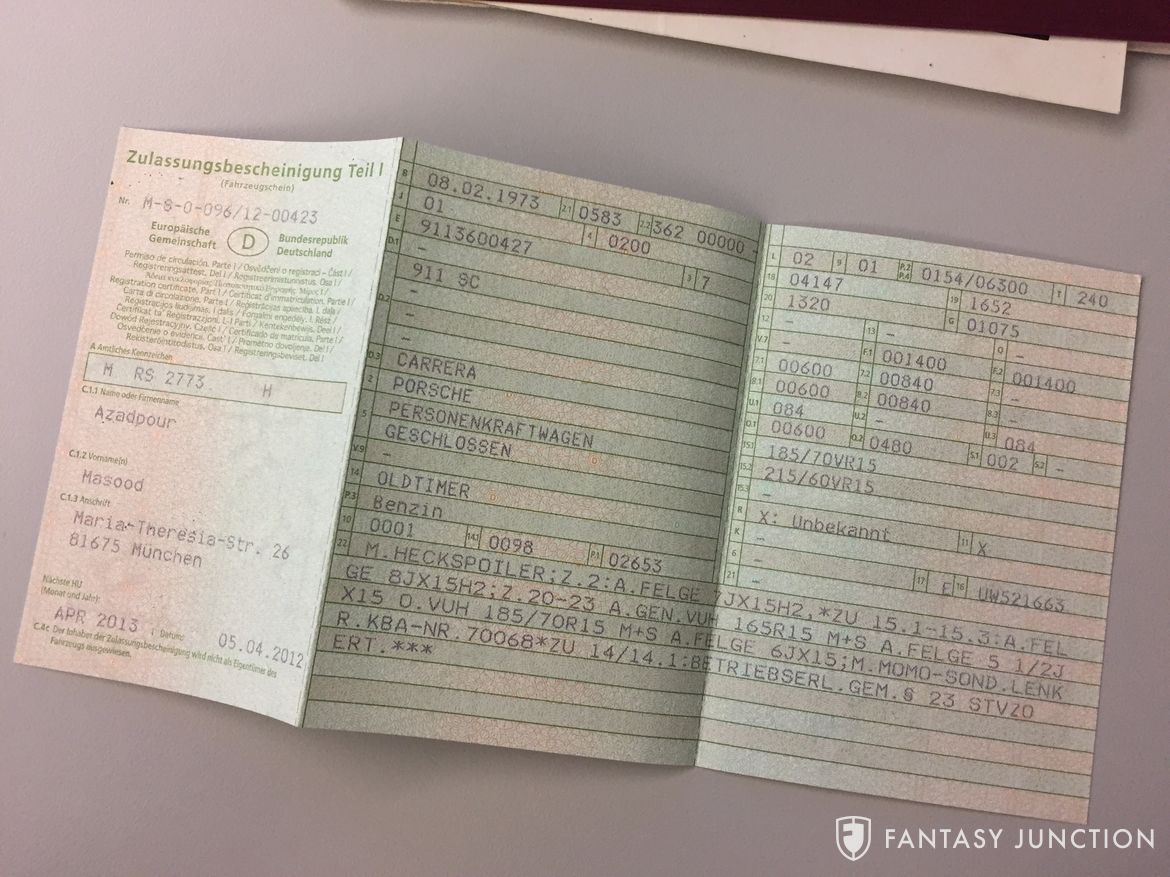 Zulassungsbescheinigung Teil I
(Fahrzeugschein)
Nr. M-S-0-096/12-00423
Europäische
Gemeinschaft
D
Bundesrepublik
Deutschland
Permiso de circulación. Parte I / Osvědčení o registraci – Část I /
Registreringsattest. Del I / Registreerimistunnistus. Osa I /
Registration certificate. Part I / Certificat d'immatriculation. Partie I /
Carta di circolazione. Parte I / Reģistrācijas apliecība. I. daļa /
Registracijos liudijimas. I dalis / Forgalmi engedély. I. Rész /
Ċertifikat ta' Reġistrazzjoni. L-I Parti / Kentekenbewijs. Deel I /
Dowód Rejestracyjny. Część I / Certificado de matrícula. Parte I /
Osvedčenie o evidencii. Časť I / Prometno dovoljenje. Del I /
Rekisteröintitodistus. Osa I / Registreringsbeviset. Del I
A Amtliches Kennzeichen
M RS 2773 H
C.1.1 Name oder Firmenname
Azadpour
C.1.2 Vorname(n)
Masood
C.1.3 Anschrift
Maria-Theresia-Str. 26
81675 München
Nächste HU
(Monat und Jahr):
APR 2013 ; Datum: 05.04.2012
C.4c Der Inhaber der Zulassungsbescheinigung wird nicht als Eigentümer des
Fahrzeugs ausgewiesen.
B 08.02.1973 2.1 0583 2.2 362 00000 -
J 01 4 0200
E 9113600427 3 7
D.1 -
911 SC
D.2 -
-
-
D.3 CARRERA
2 PORSCHE
5 PERSONENKRAFTWAGEN
GESCHLOSSEN
V.9 -
14 OLDTIMER
P.3 Benzin
10 0001 14.1 0098 P.1 02653
L 02 9 01 P.2 P.4 0154/06300 T 240
18 04147 19 1652
20 1320 G 01075
12 - 13 - Q -
V.7 - F.1 001400 F.2 001400
7.1 00600 7.2 00840 7.3 -
8.1 00600 8.2 00840 8.3 -
U.1 084 U.2 - U.3 084
O.1 00600 O.2 0480 S.1 002 S.2 -
15.1 185/70VR15
15.2 215/60VR15
15.3 -
R X: Unbekannt 11 X
K -
6 - 17 E 16 UW521663
21 -
22 M.HECKSPOILER;Z.2:A.FELGE 7JX15H2,*ZU 15.1-15.3:A.FEL
GE 8JX15H2;Z.20-23 A.GEN.VUH 165R15 M+S A.FELGE 5 1/2J
X15 O.VUH 185/70R15 M+S A.FELGE 6JX15;M.MOMO-SOND.LENK
R.KBA-NR.70068*ZU 14/14.1:BETRIEBSERL.GEM.§ 23 STVZO
ERT.***
FANTASY JUNCTION